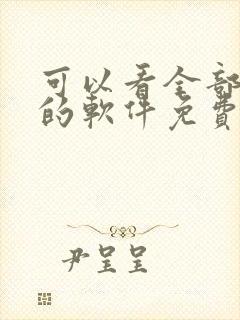 可以看全部
的軟件免費
尹呈呈